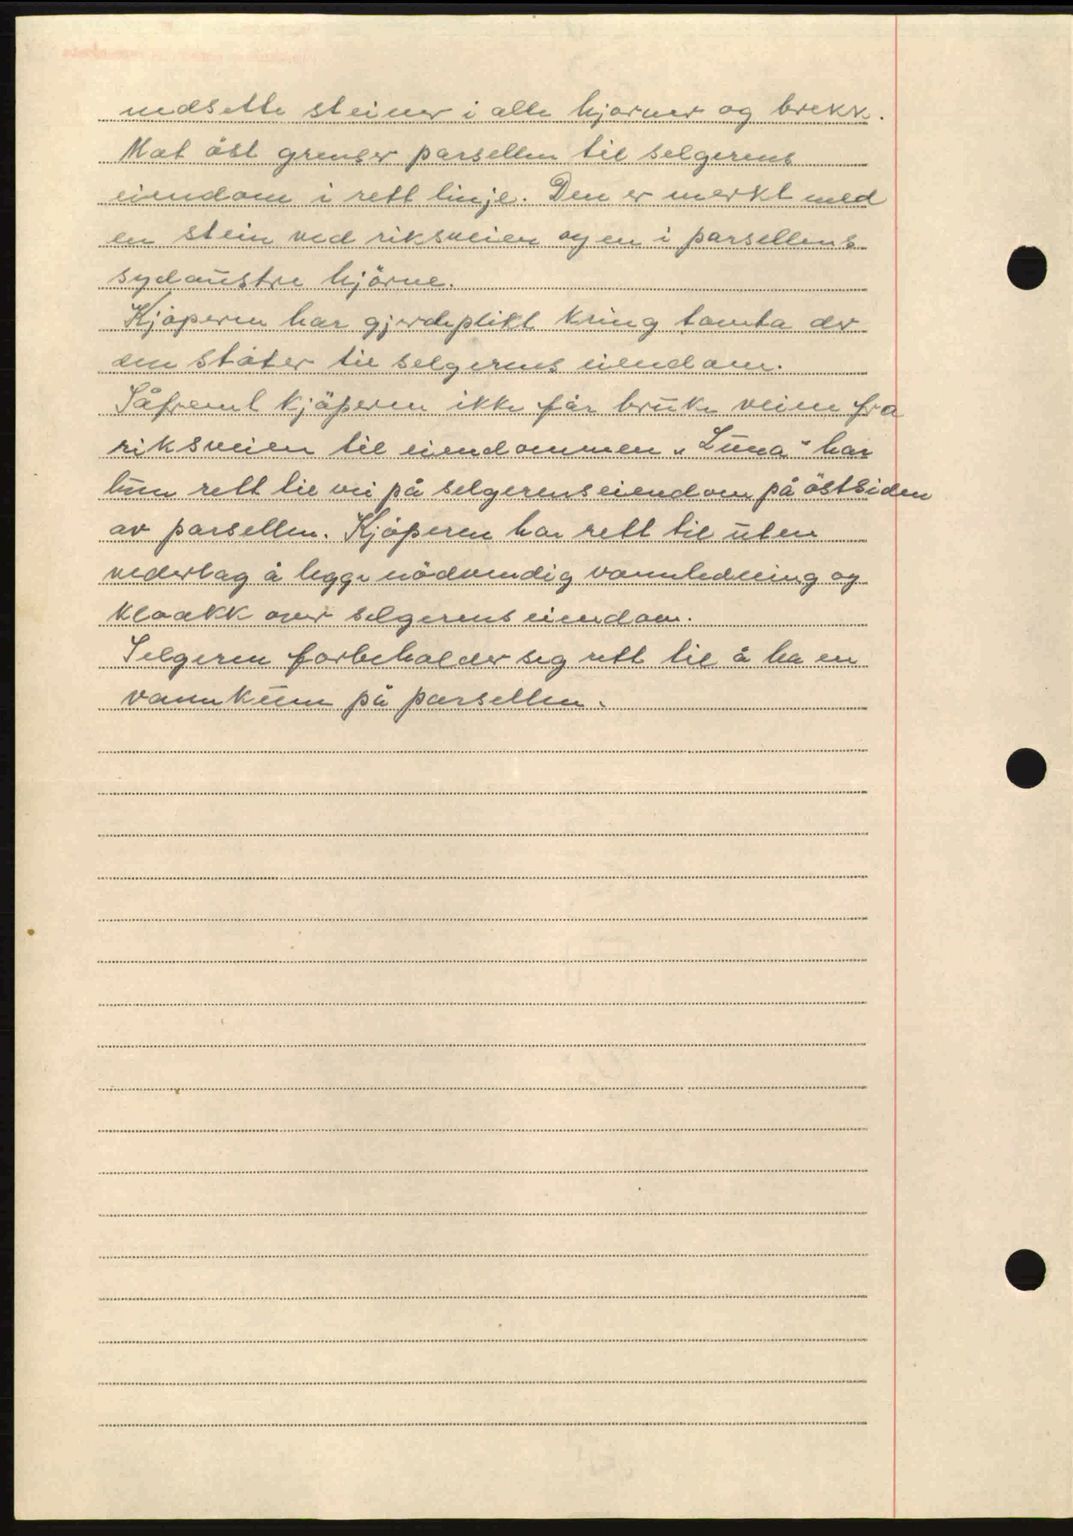 nedsette steiner i alle hjørner og brekk.
Mot øst grenser parsellen til selgerens
eiendom i rett linje. Den er merkt med
en stein ved riksveien og en i parsellens
sydaustre hjørne.
Kjøperen har gjerdeplikt kring tomta der
den støter til selgerens eiendom.
Såfremt kjøperen ikke får bruke veien fra
riksveien til eiendommen „Luna“ har
hun rett til vei på selgerens eiendom på østsiden
av parsellen. Kjøperen har rett til uten
vederlag å legge nødvendig vannledning og
kloakk over selgerens eiendom.
Selgeren forbeholder seg rett til å ha en
vannkum på parsellen.